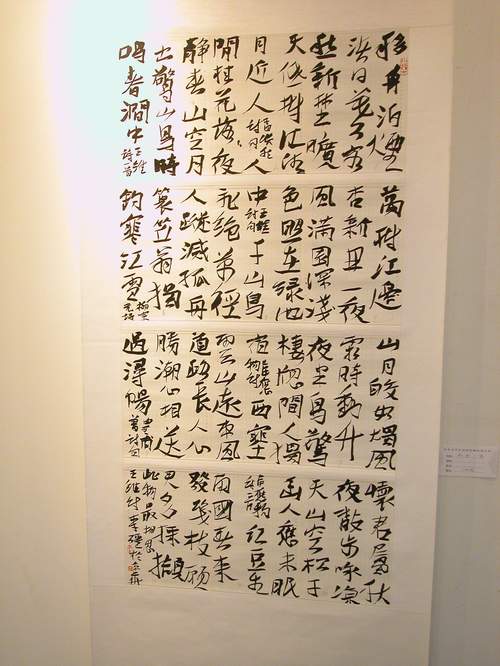 移舟泊煙
渚日暮客
愁新野曠
天低樹江清
月近人 孟浩然詩句 人
閒桂花落夜
靜春山空月
出驚山鳥時
鳴春澗中 王維詩句
萬樹江邊
杏新開一夜
風滿園深淺
色照在綠池
中 王涯詩句 千山鳥
飛絕萬徑
人蹤滅孤舟
簑笠翁獨
釣寒江雪 柳宗元詩
山月皎如燭風
霜時動竹
夜半鳥驚
棲窗間人獨
宿 西塞
雲山遠東風
道路長人心
勝潮水相送
過潯陽
懷君屬秋
夜散步詠涼
天山空松子
幽人應未眠
紅豆生
南國春來
發幾枝願
君多採擷
此物最相思
王維詩